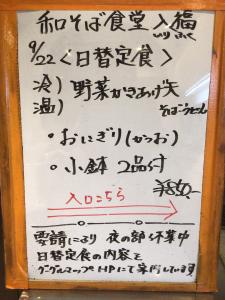 和そば食堂 入福
いりふく
9/22 <日替定食>
冷) 野菜かきあげ天
温) そばorうどん
・おにぎり(かつお)
・小鉢 2品付
¥850-
入口こちら
要請により 夜の部 休業中
日替定食の内容を
グーグルマップ HPにて案内しています